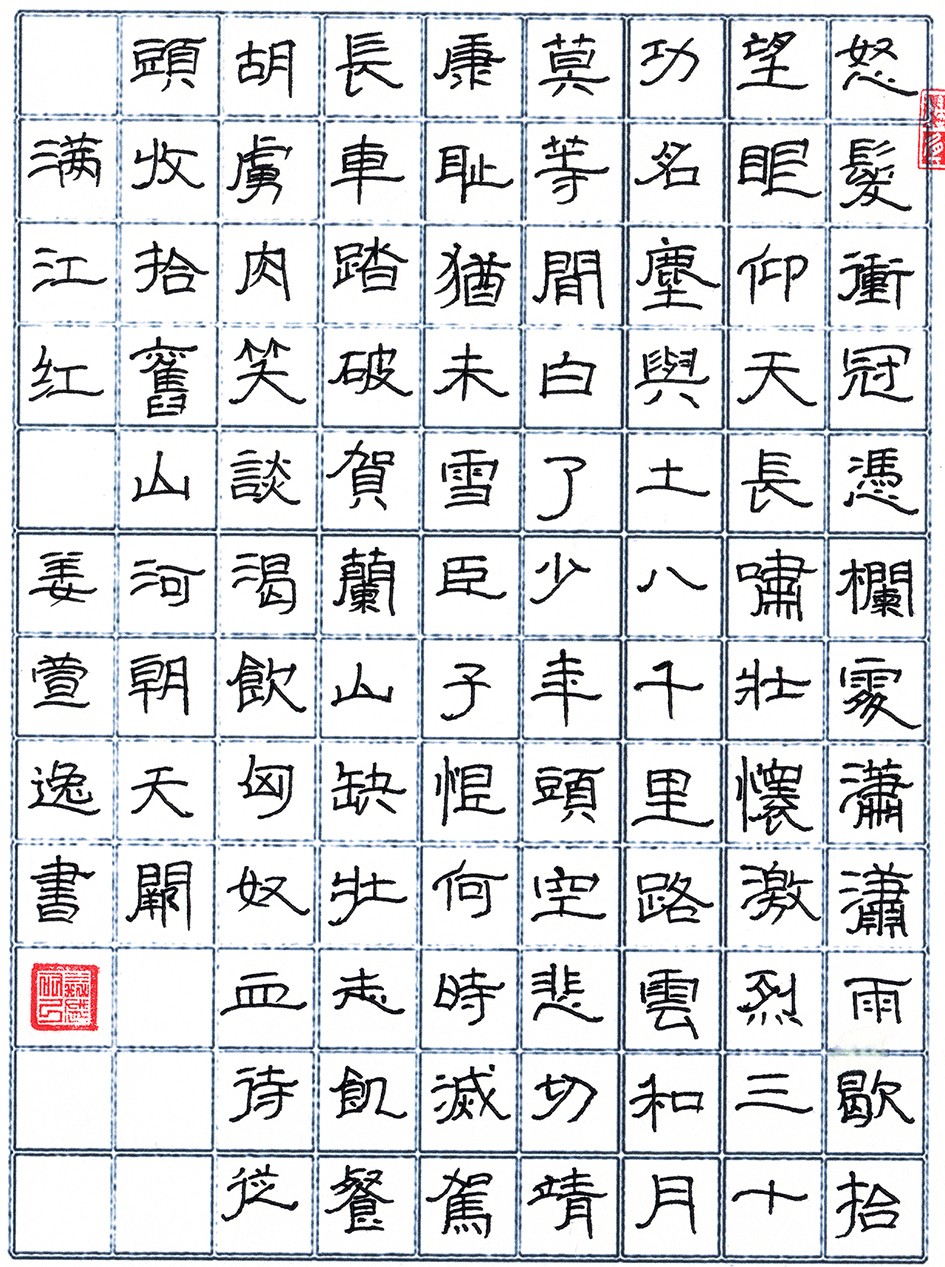 怒髮衝冠憑欄處瀟瀟雨歇拾
望眼仰天長嘯壯懷激烈三十
功名塵與土八千里路雲和月
莫等閒白了少年頭空悲切靖
康耻猶未雪臣子恨何時滅駕
長車踏破賀蘭山缺壯志飢餐
胡虜肉笑談渴飲匈奴血待從
頭收拾舊山河朝天闕
满江红 姜萱逸書